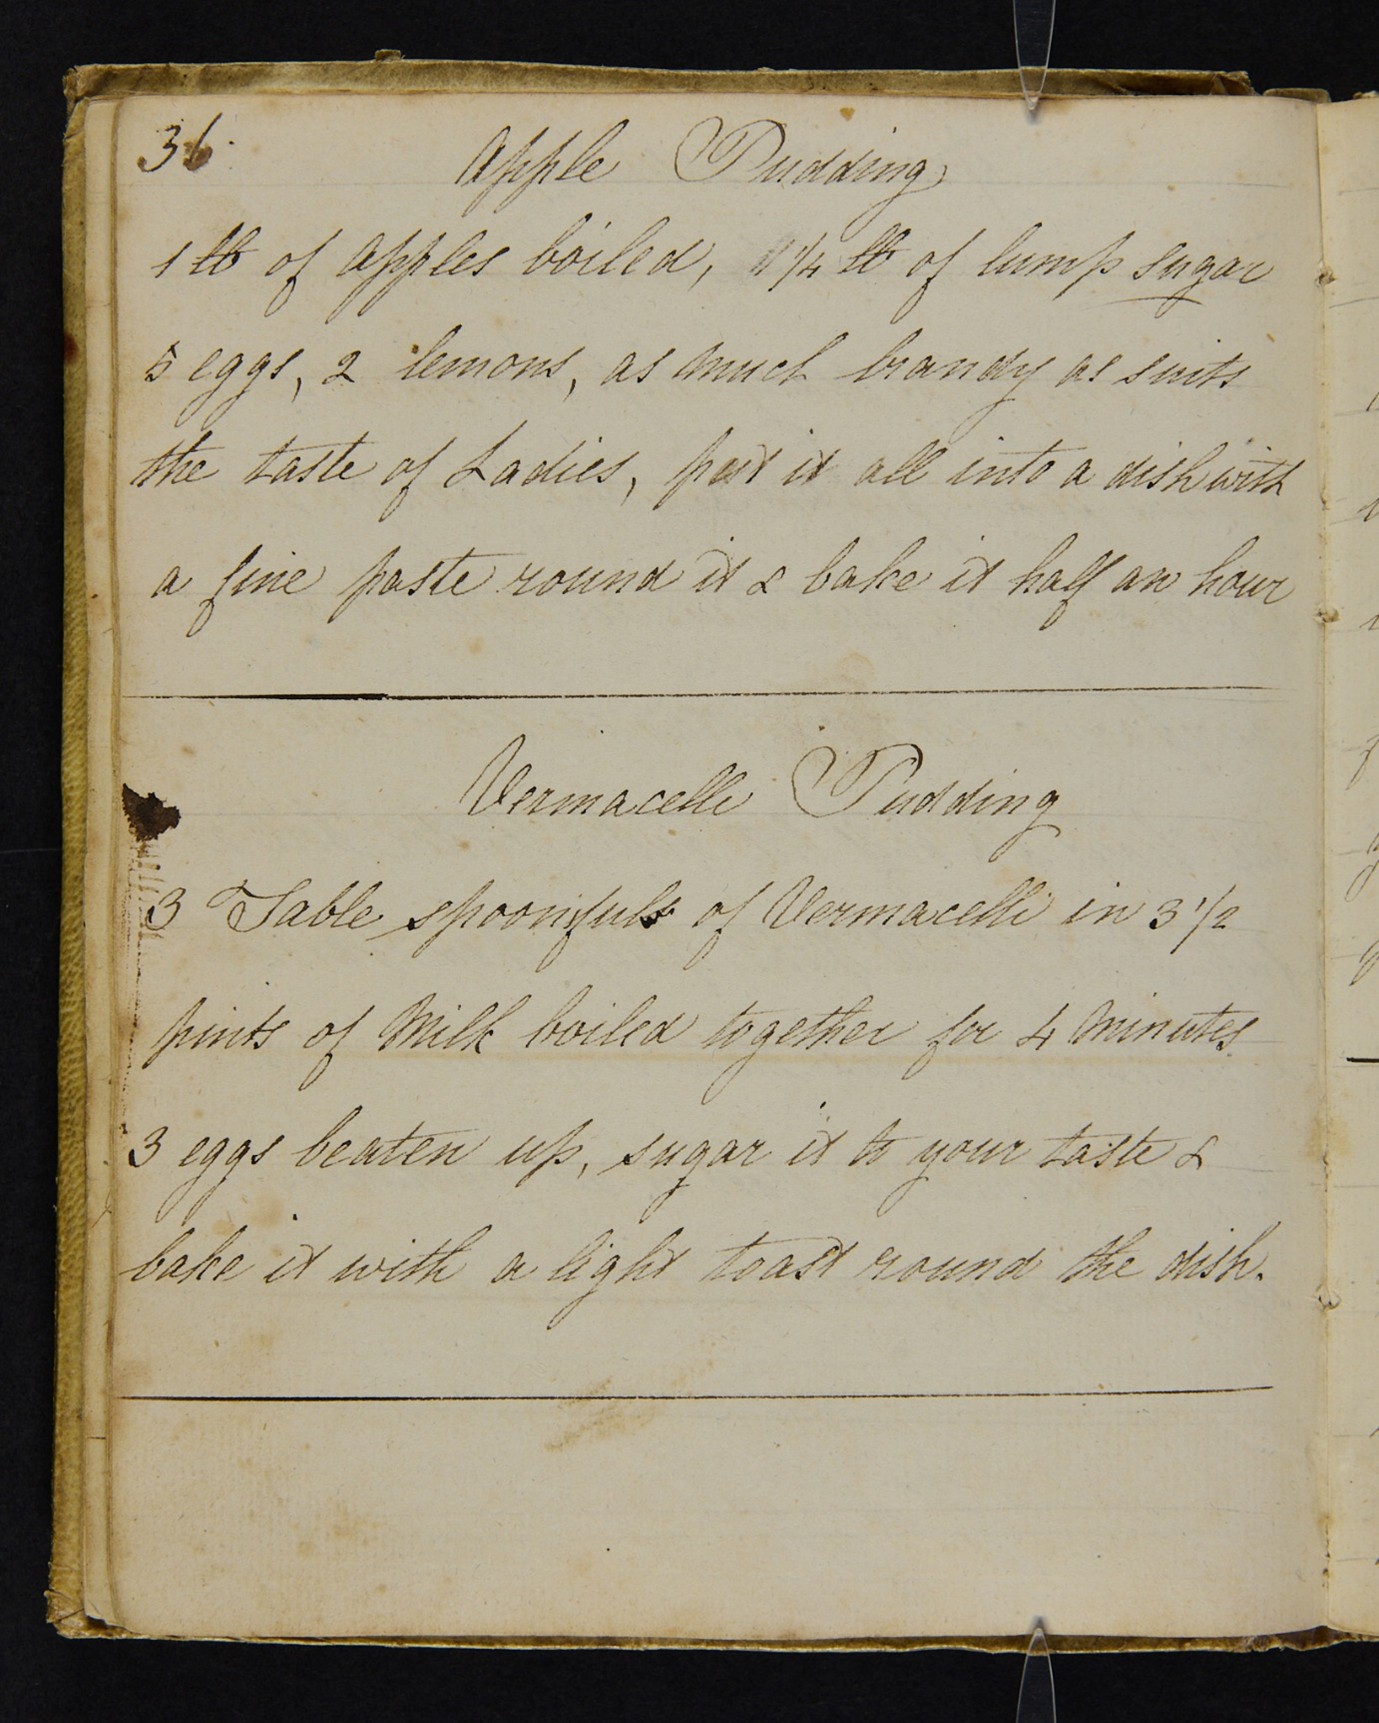 36.
Apple Pudding
1 lb of apples boiled, 1 1/4 lb of lump sugar
5 eggs, 2 lemons, as much brandy as suits
the taste of Ladies, put it all into a dish with
a fine paste round it & bake it half an hour
Vermacelli Pudding
3 Table spoonfuls of Vermacelli in 3 1/2
pints of Milk boiled together for 4 minutes
3 eggs beaten up, sugar it to your taste &
bake it with a light toast round the dish.